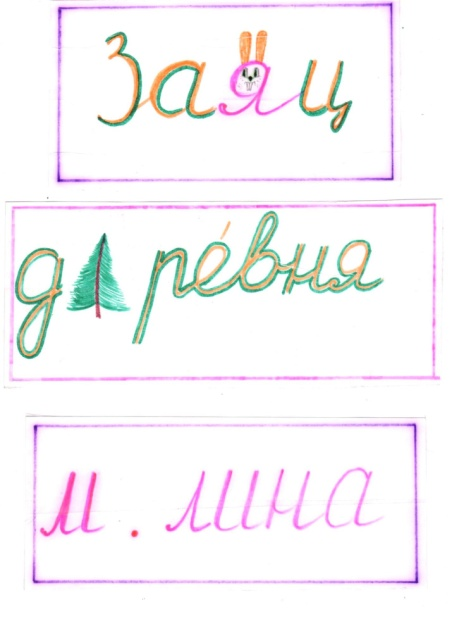 Заяц
д ре́вня
м . лина